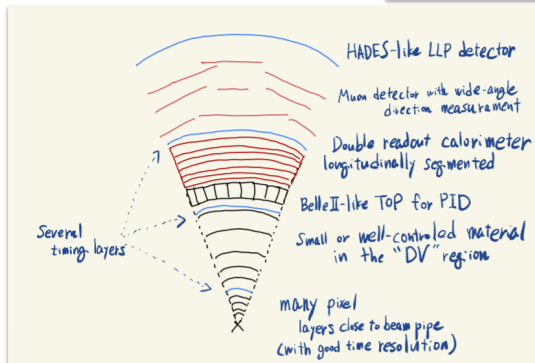 HADES-like LLP detector
Muon detector with wide-angle
direction measurement
Double readout calorimeter
longitudinally segmented
BelleII-like TOP for PID
Several
timing layers
Small or well-controled material
in the "DV" region
many pixel
layers close to beam pipe
(with good time resolution)